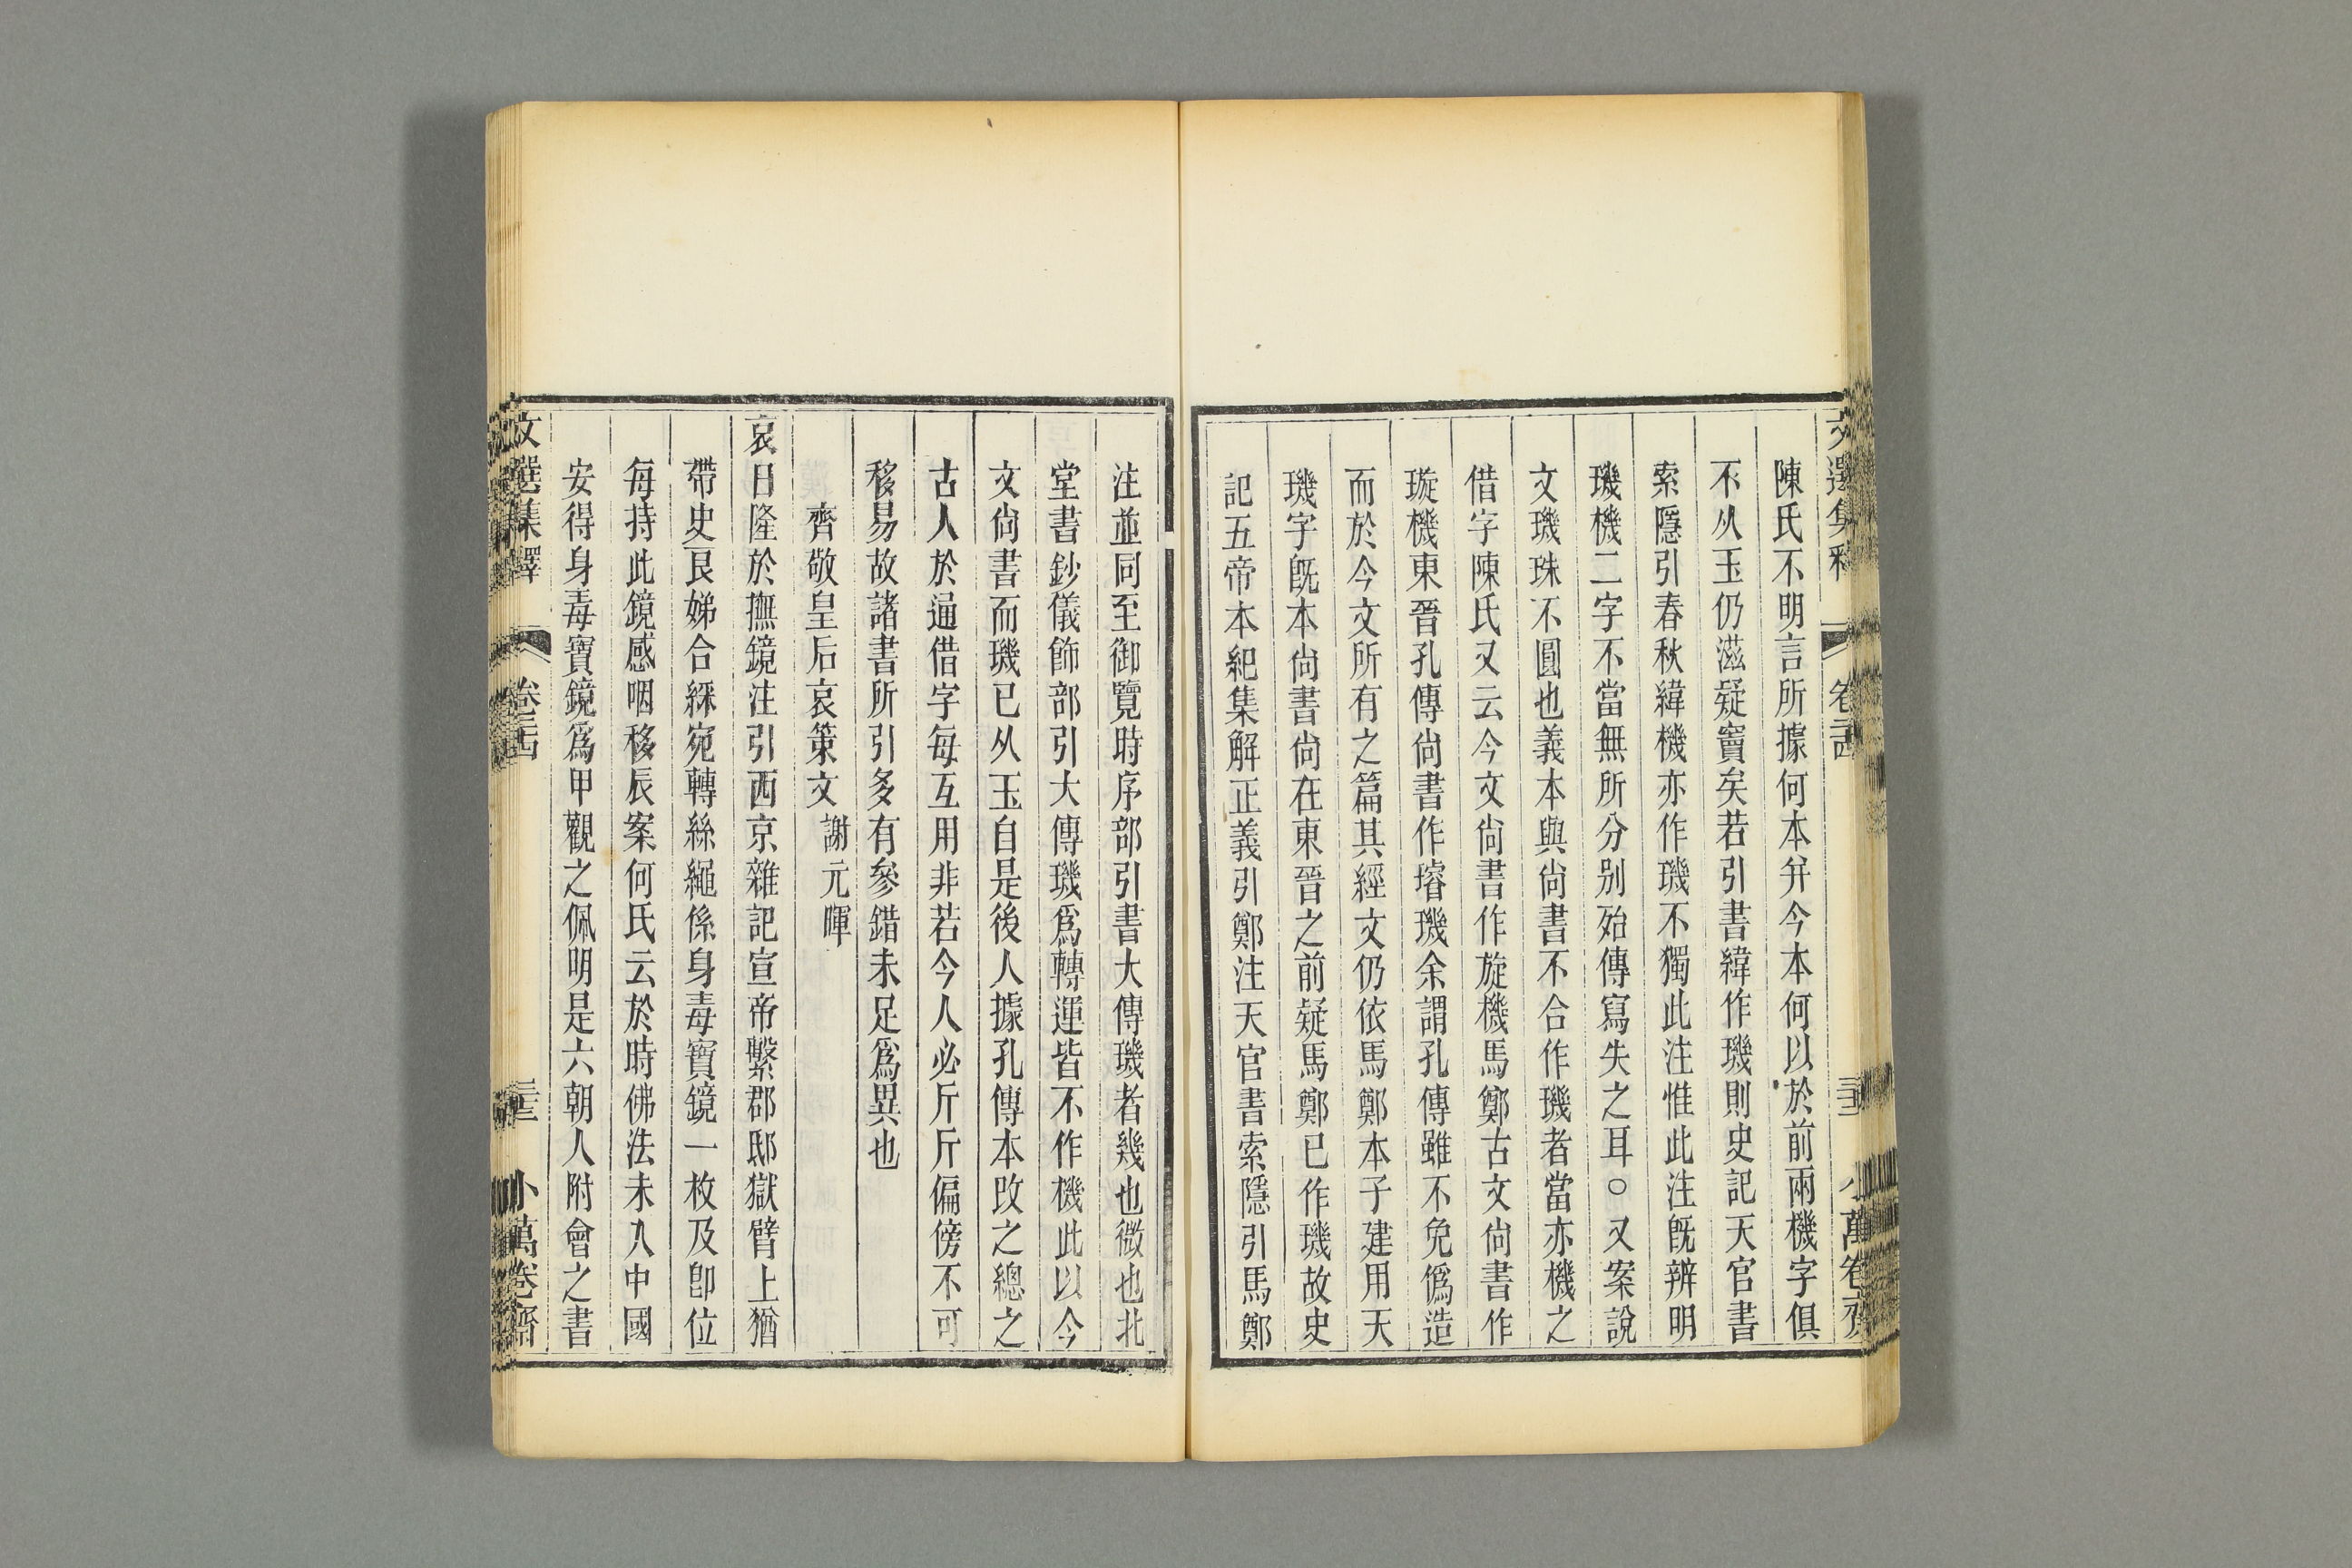 文選集釋 卷二十四 二十二 小萬卷齋
陳氏不明言所據何本幷今本何以於前兩機字俱
不从玉仍滋疑竇矣若引書緯作璣則史記天官書
索隱引春秋緯機亦作璣不獨此注惟此注旣辨明
璣機二字不當無所分别殆傳寫失之耳○又案說
文璣珠不圓也義本與尙書不合作璣者當亦機之
借字陳氏又云今文尙書作旋機馬鄭古文尙書作
璇機東晉孔傳尙書作璿璣余謂孔傳雖不免僞造
而於今文所有之篇其經文仍依馬鄭本子建用天
璣字旣本尙書尙在東晉之前疑馬鄭已作璣故史
記五帝本紀集解正義引鄭注天官書索隱引馬鄭
注並同至御覽時序部引書大傳璣者幾也微也北
堂書鈔儀飾部引大傳璣爲轉運皆不作機此以今
文尙書而璣已从玉自是後人據孔傳本改之總之
古人於通借字每互用非若今人必斤斤偏傍不可
移易故諸書所引多有參錯未足爲異也
齊敬皇后哀策文 謝元暉
哀日隆於撫鏡注引西京雜記宣帝繫郡邸獄臂上猶
帶史艮娣合綵宛轉絲繩係身毒寶鏡一枚及卽位
每持此鏡感咽移辰案何氏云於時佛法未入中國
安得身毒寶鏡爲甲觀之佩明是六朝人附會之書
文選集釋 卷二十四 二十三 小萬卷齋